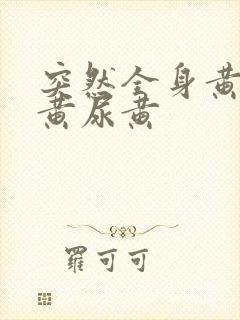 突然全身黄
黄尿黄
羅可可